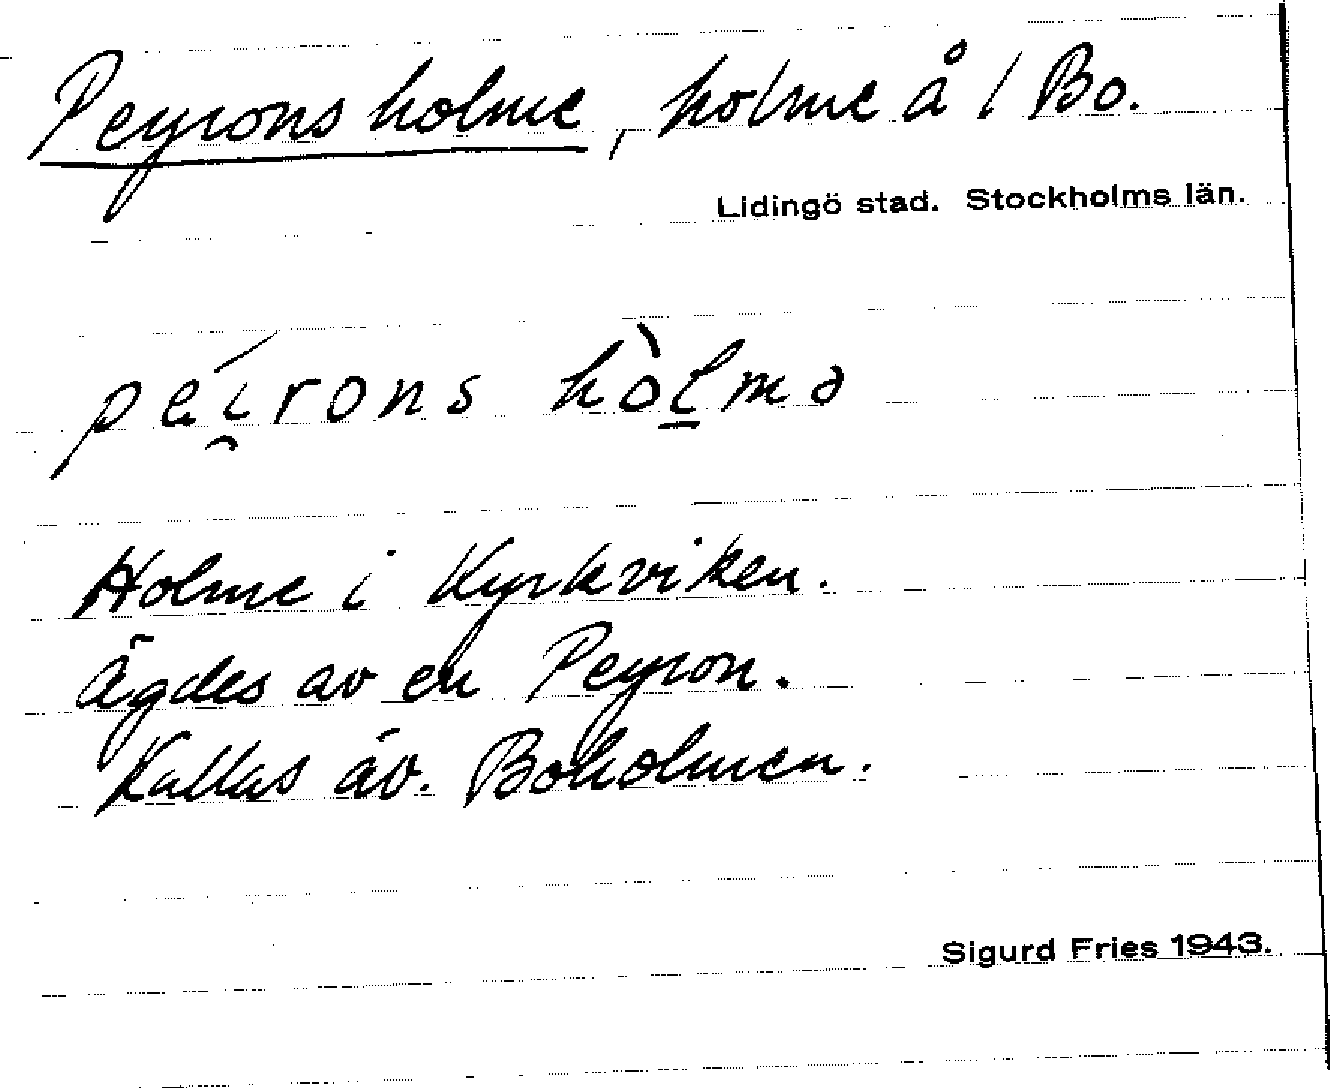 Peyrons holme, holme å / Bo.
Lidingö stad. Stockholms län.
péi̯rons hòl̲mə
Holme i Kyrkviken.
Ägdes av en Peyron.
Kallas äv. Boholmen.
Sigurd Fries 1943.